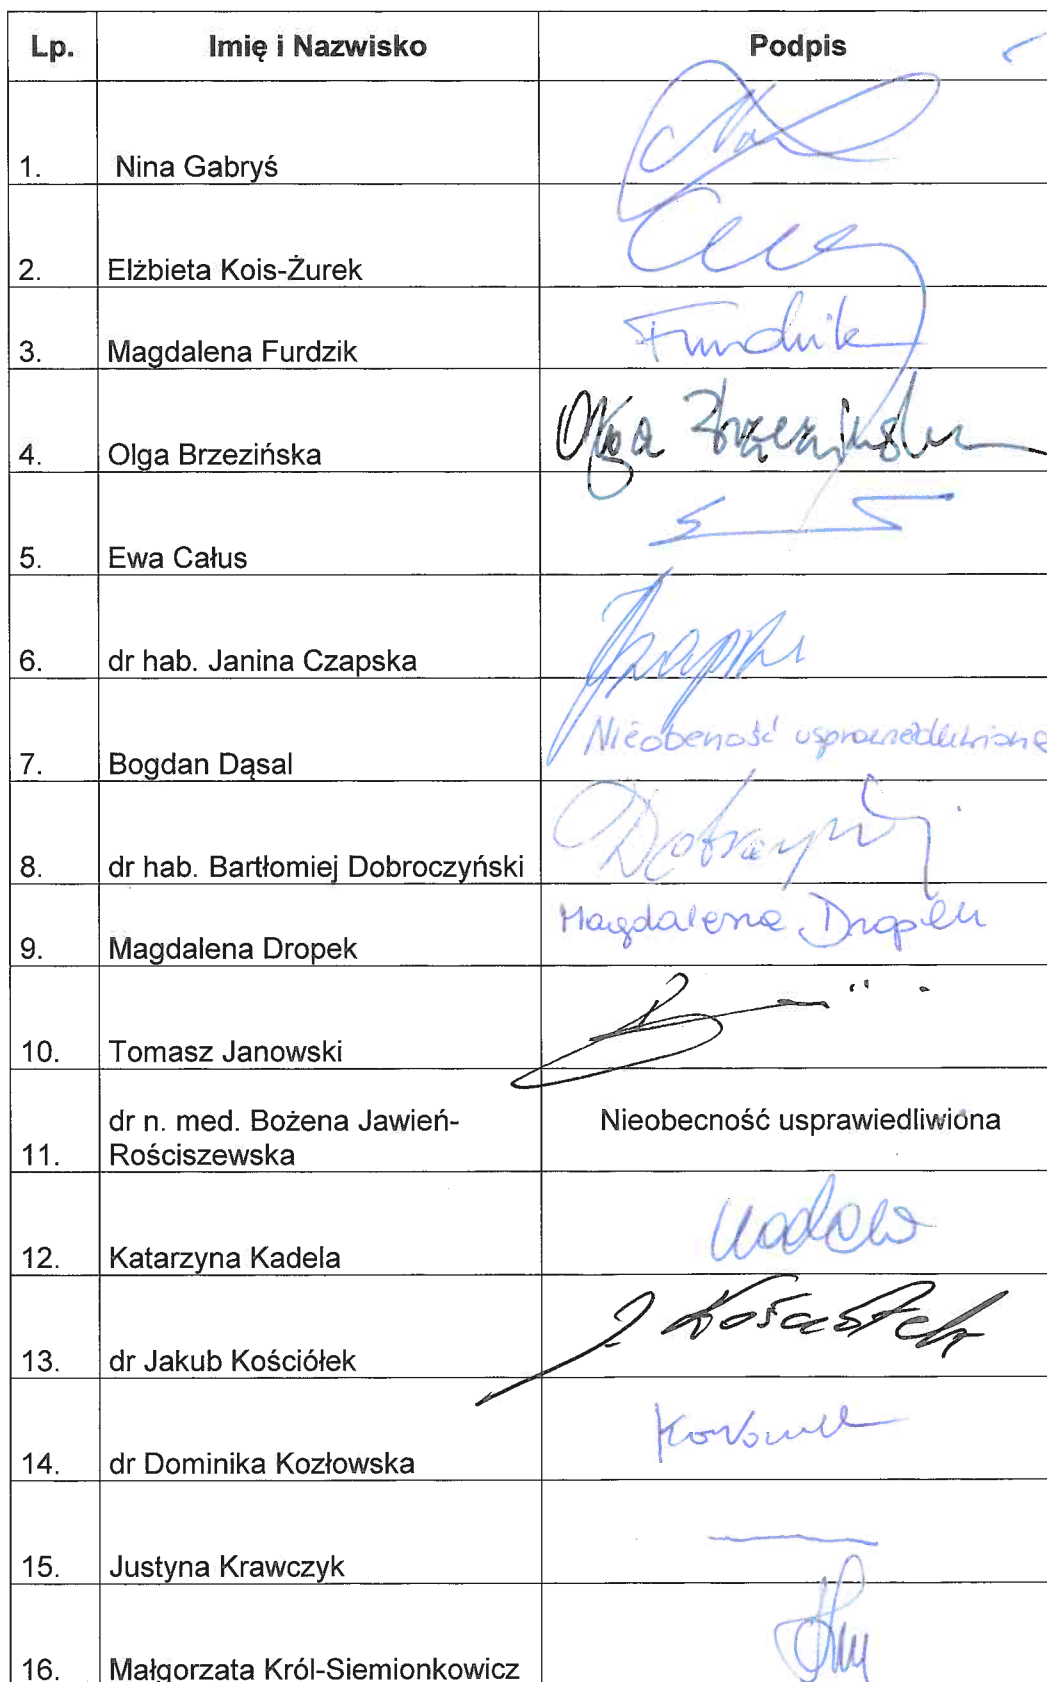 Lp. Imię i Nazwisko Podpis
1. Nina Gabryś
2. Elżbieta Kois-Żurek
3. Magdalena Furdzik Furdzik
4. Olga Brzezińska Olga Brzezińska
5. Ewa Całus
6. dr hab. Janina Czapska
7. Bogdan Dąsal Nieobeność usprawiedliwiona
8. dr hab. Bartłomiej Dobroczyński
9. Magdalena Dropek Magdalena Dropek
10. Tomasz Janowski
dr n. med. Bożena Jawień- Nieobecność usprawiedliwiona
11. Rościszewska
12. Katarzyna Kadela Kadela
13. dr Jakub Kościółek J. Kościółek
14. dr Dominika Kozłowska
15. Justyna Krawczyk
16. Małgorzata Król-Siemionkowicz